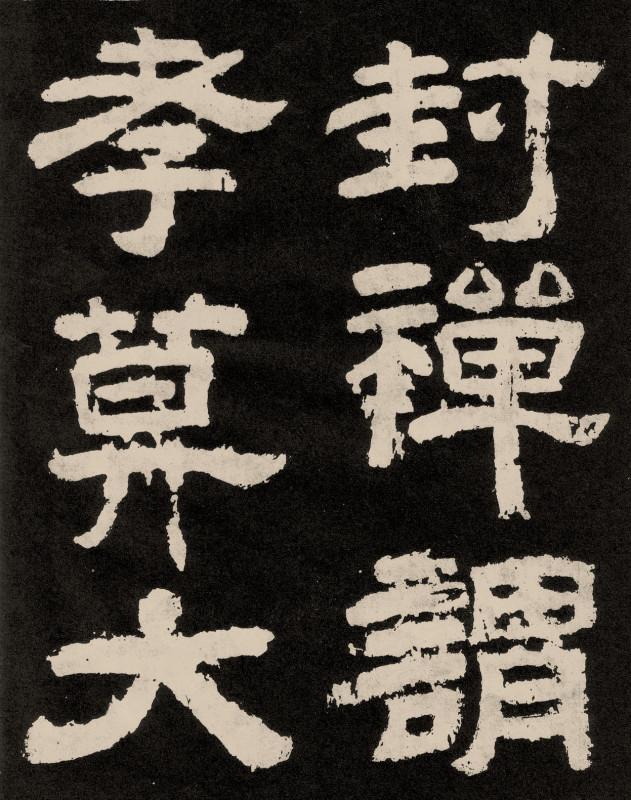 封禪謂
孝莫大